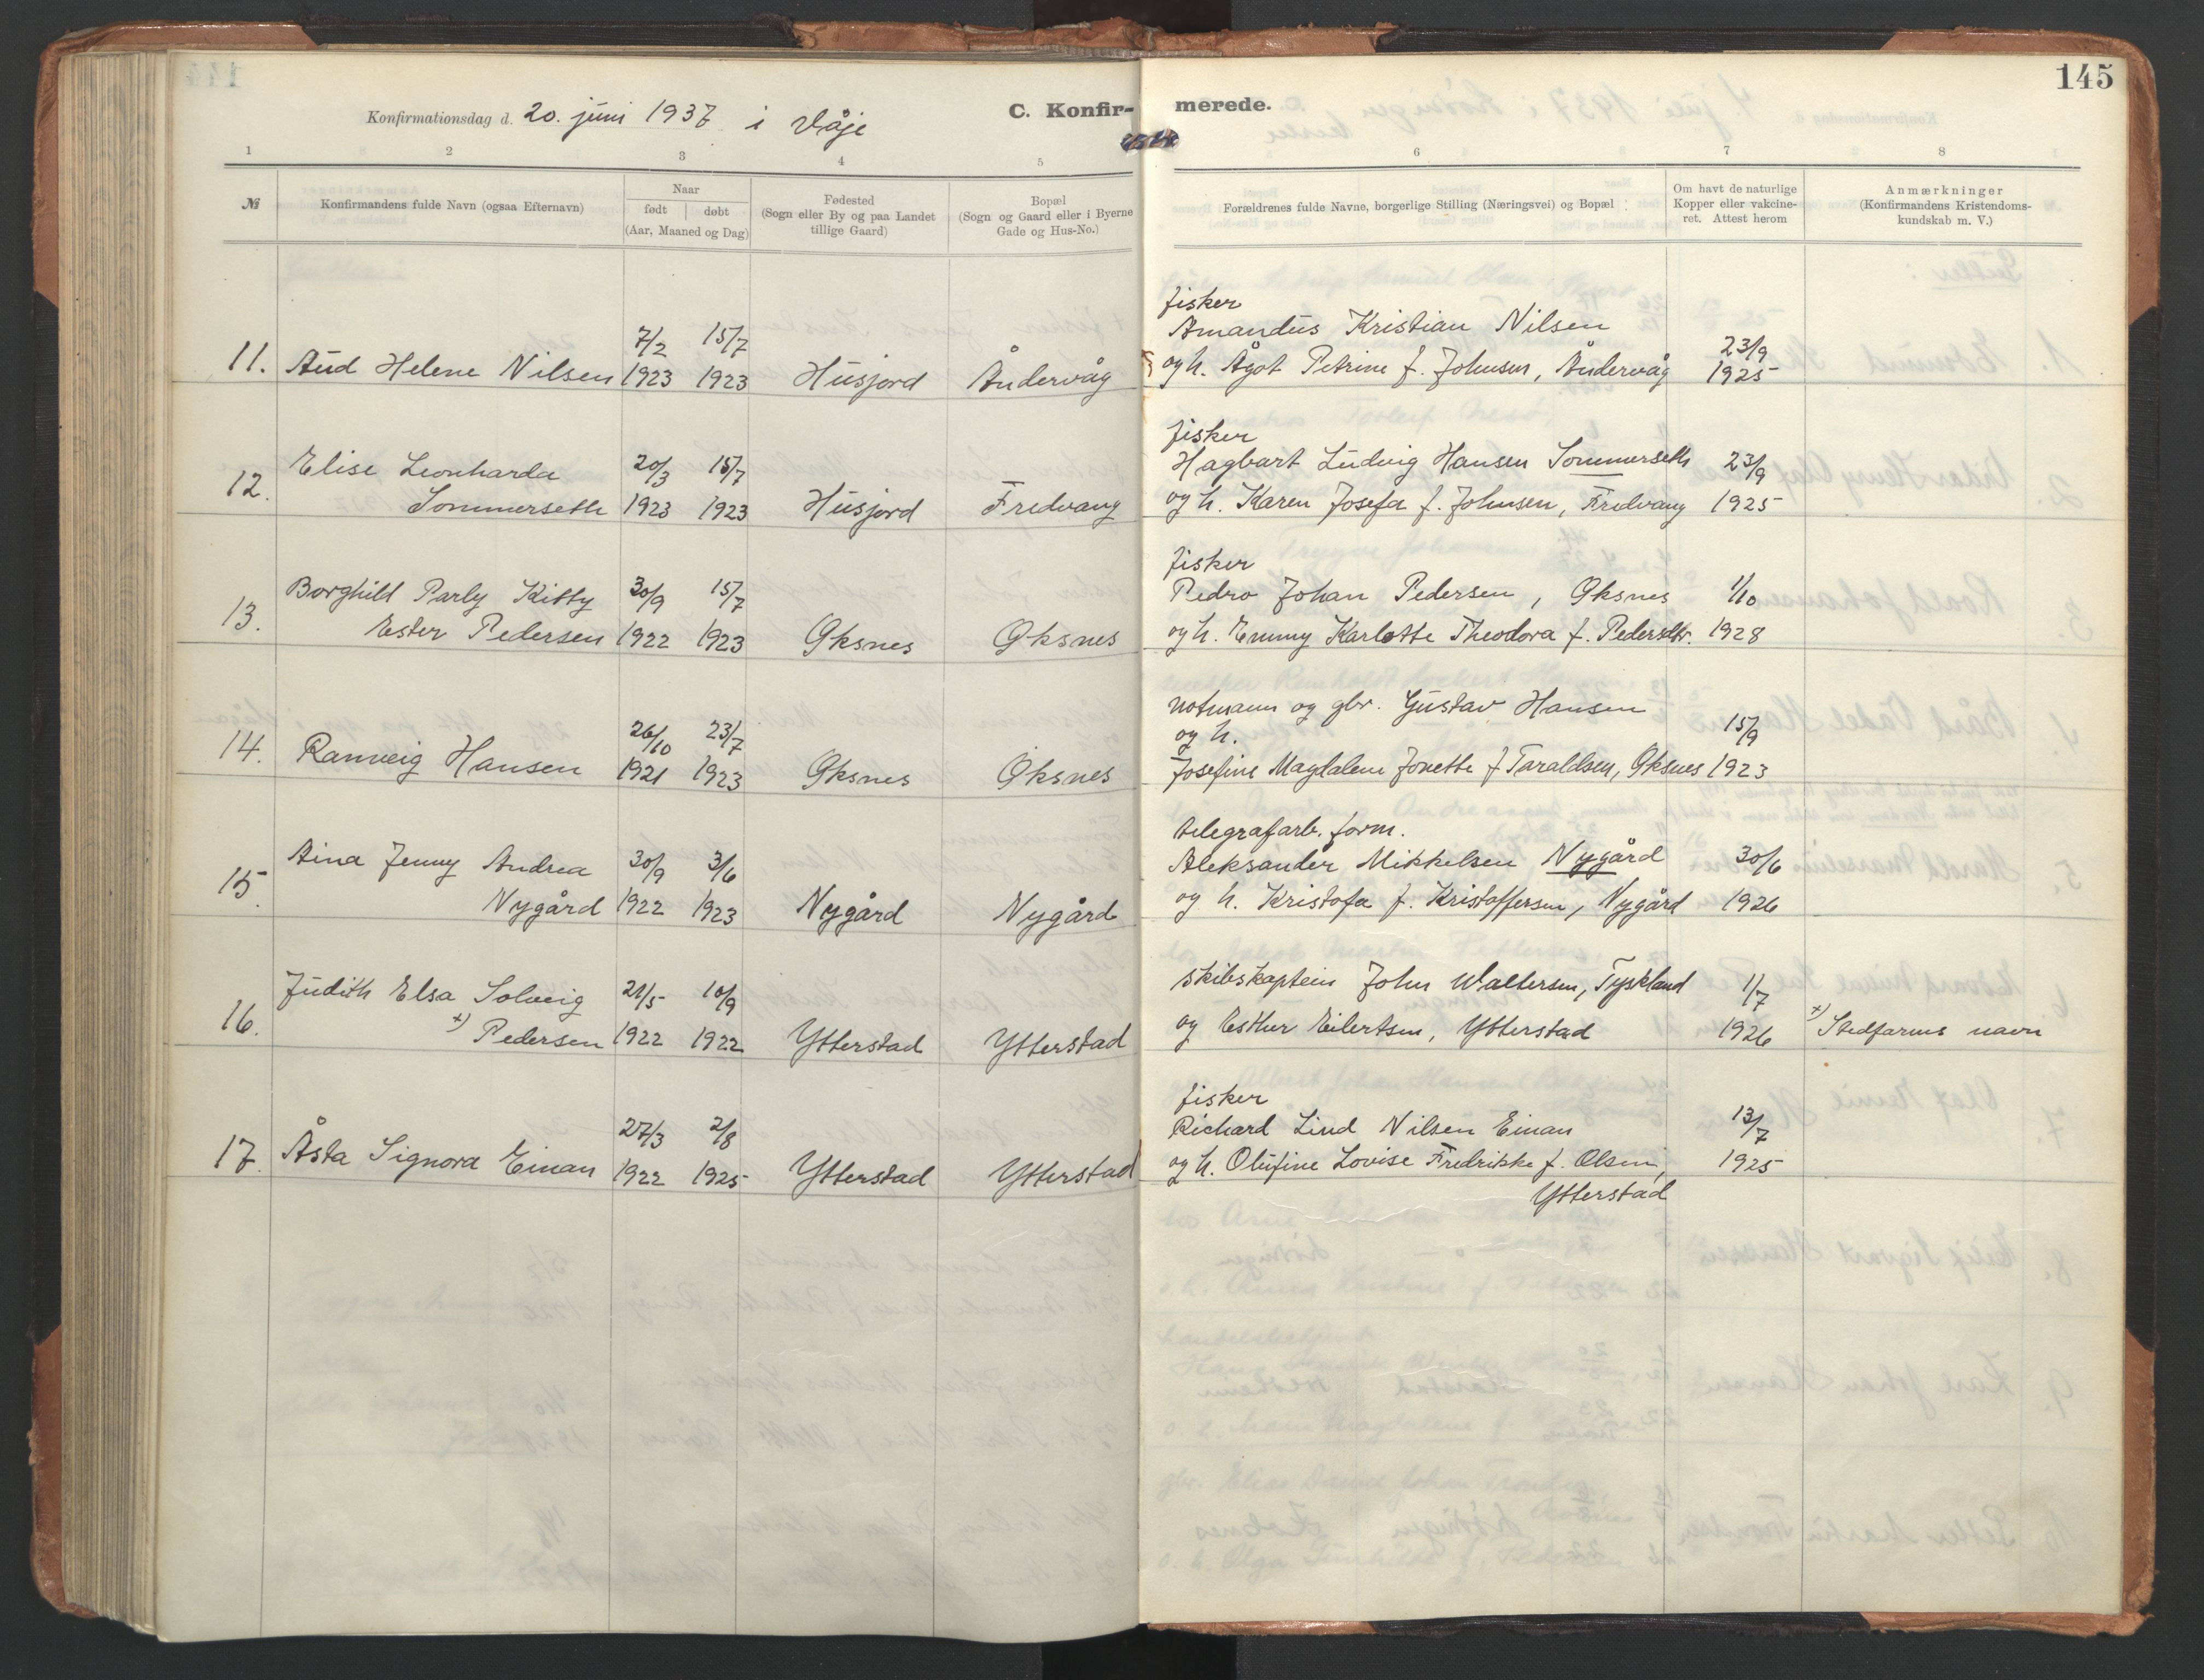 145
Konfirmationsdag d. 20. juni 1937 i Våje
C. Konfir-
merede.
1 2 3 4 5 6 7 8
№
Konfirmandens fulde Navn (ogsaa Efternavn)
Naar
født døbt
(Aar, Maaned og Dag)
Fødested
(Sogn eller By og paa Landet
tillige Gaard)
Bopæl
(Sogn og Gaard eller i Byerne
Gade og Hus-No.)
Forældrenes fulde Navne, borgerlige Stilling (Næringsvei) og Bopæl
Om havt de naturlige
Kopper eller vakcine-
ret. Attest herom
Anmærkninger
(Konfirmandens Kristendoms-
kundskab m. V.)
fisker
7/2 15/7 Amandus Kristian Nilsen 23/9
11. Aud Helene Nilsen 1923 1923 Husjord Åndervåg og h. Ågot Petrine f. Johnsen, Åndervåg 1925
fisker
Elise Leonharda 20/3 15/7 Hagbart Ludvig Hansen Sommerseth 23/9
12. Sommerseth 1923 1923 Husjord Fredvang og h. Karen Josefa f. Johnsen, Fredvang 1925
fisker
Borghild Parly Kitty 30/9 15/7 Pedro Johan Pedersen, Øksnes 1/10
13. Ester Pedersen 1922 1923 Øksnes Øksnes og h. Emmy Karlotte Theodora f. Pedersdtr. 1928
notmann og gbr. Gustav Hansen
26/10 23/7 og h. 15/9
14. Ranveig Hansen 1921 1923 Øksnes Øksnes Josefine Magdalene Jonette f Taraldsen, Øksnes 1923
telegrafarb. form.
Aina Jenny Andrea 30/9 3/6 Aleksander Mikkelsen Nygård 30/6
15. Nygård 1922 1923 Nygård Nygård og h. Kristofa f. Kristoffersen, Nygård 1926
Judith Elsa Solveig 21/5 10/9 skibskaptein John Waltersen, Tyskland 1/7
16. x) Pedersen 1922 1922 Ytterstad Ytterstad og Esther Eilertsen, Ytterstad 1926 x) Stedfarens navn
fisker
27/3 2/8 Richard Lind Nilsen Einan 13/7
17. Åsta Signora Einan 1922 1925 Ytterstad Ytterstad og h. Olufine Lovise Fredrikke f. Olsen, 1925
Ytterstad